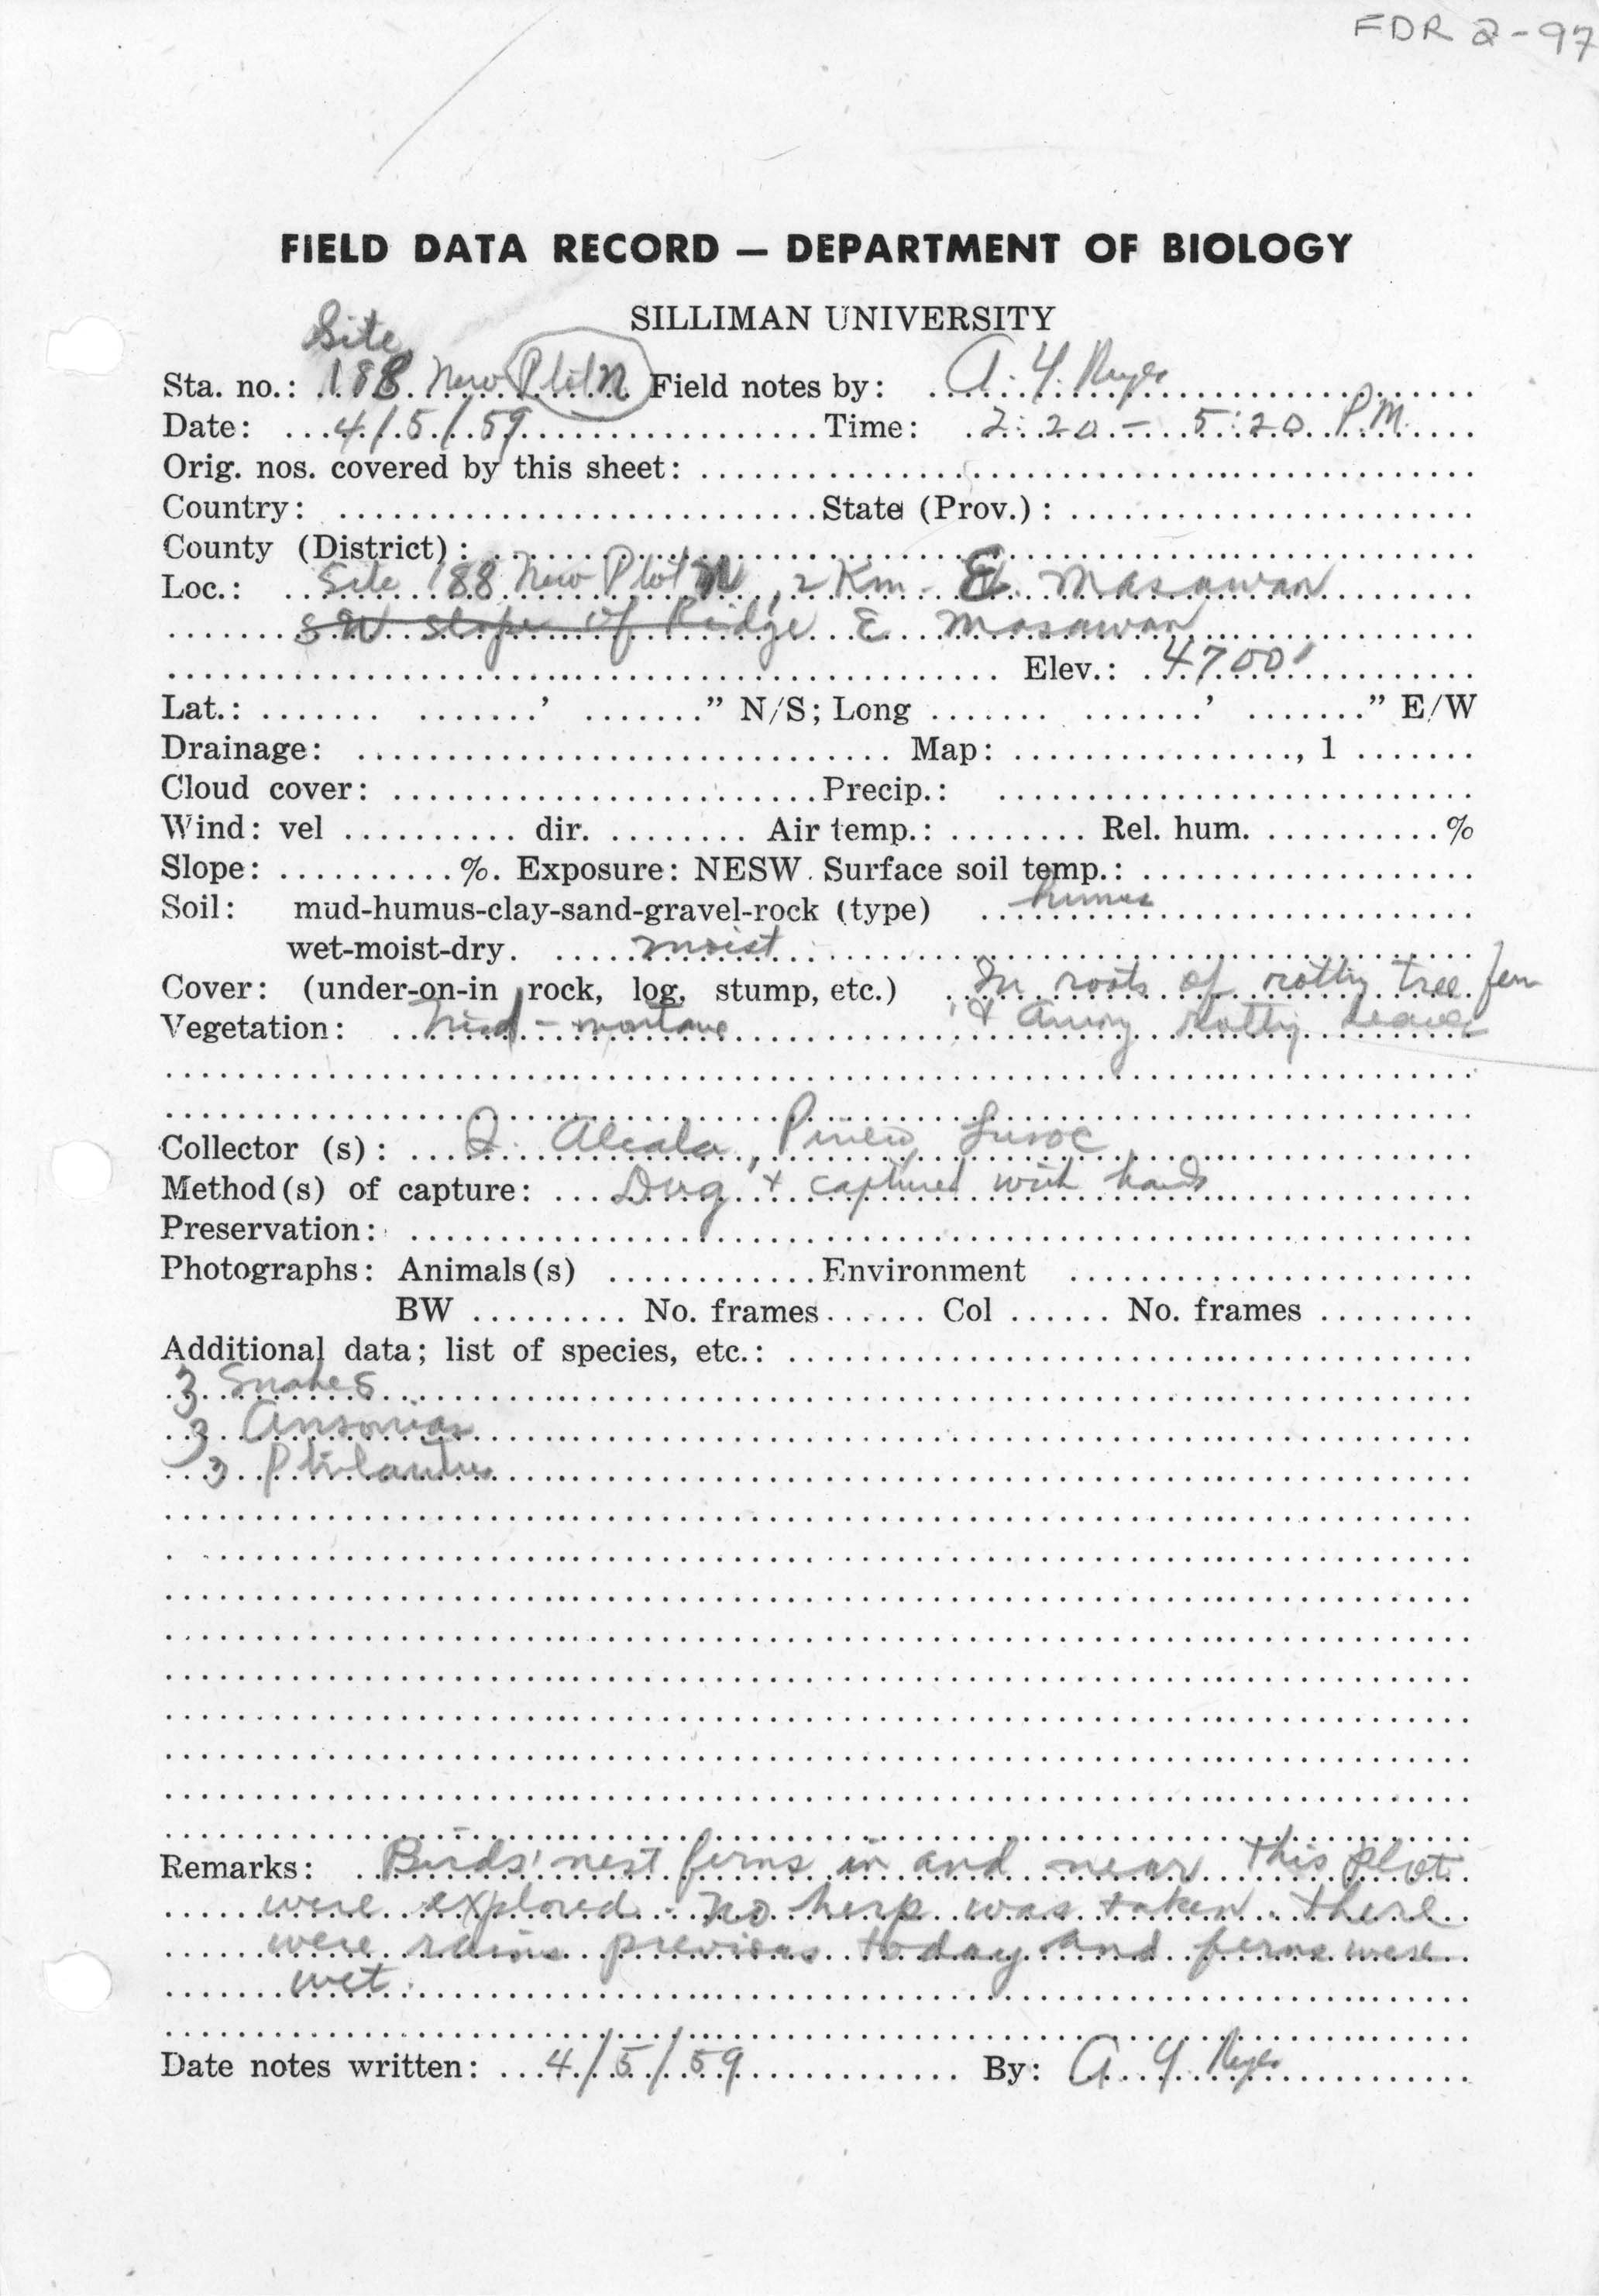 FDR 2-97
FIELD DATA RECORD — DEPARTMENT OF BIOLOGY
SILLIMAN UNIVERSITY
Site
Sta. no.: 188 New Plot N Field notes by: A. Y. Reyes
Date: 4/5/59 Time: 2:20 - 5:20 P.M.
Orig. nos. covered by this sheet:
Country: State (Prov.):
County (District):
Loc.: Site 188 New Plot N, 2 Km. E. Masawan
SW slope of Ridge E Masawan
Elev.: 4700'
Lat.: ' " N/S; Long ' " E/W
Drainage: Map: , 1
Cloud cover: Precip.:
Wind: vel dir. Air temp.: Rel. hum. %
Slope: %. Exposure: NESW. Surface soil temp.:
Soil: mud-humus-clay-sand-gravel-rock (type) humus
wet-moist-dry. moist
Cover: (under-on-in rock, log, stump, etc.) In roots of rotting tree fern
& among rotting leaves
Vegetation: mid-montane
Collector (s): Q. Alcala, Lusoc
Method(s) of capture: Dug & captured with hands
Preservation:
Photographs: Animals(s) Environment
BW No. frames Col No. frames
Additional data; list of species, etc.:
3 Snakes
3 Ansonias
3 Philautus
Remarks: Birds' nest ferns in and near this plot
were explored. No herp was taken. There
were rains previous today and ferns were
wet.
Date notes written: 4/5/59 By: A. Y. Reyes